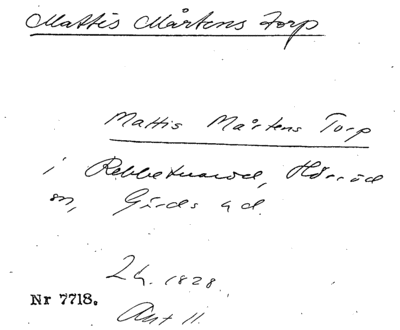 Mattis Mårtens Torp
Mattis Mårtens Torp
i Rebbetuaröd, Hörröd
sn, Gärds hd.
2h. 1828.
Nr 7718.
Ant 11.